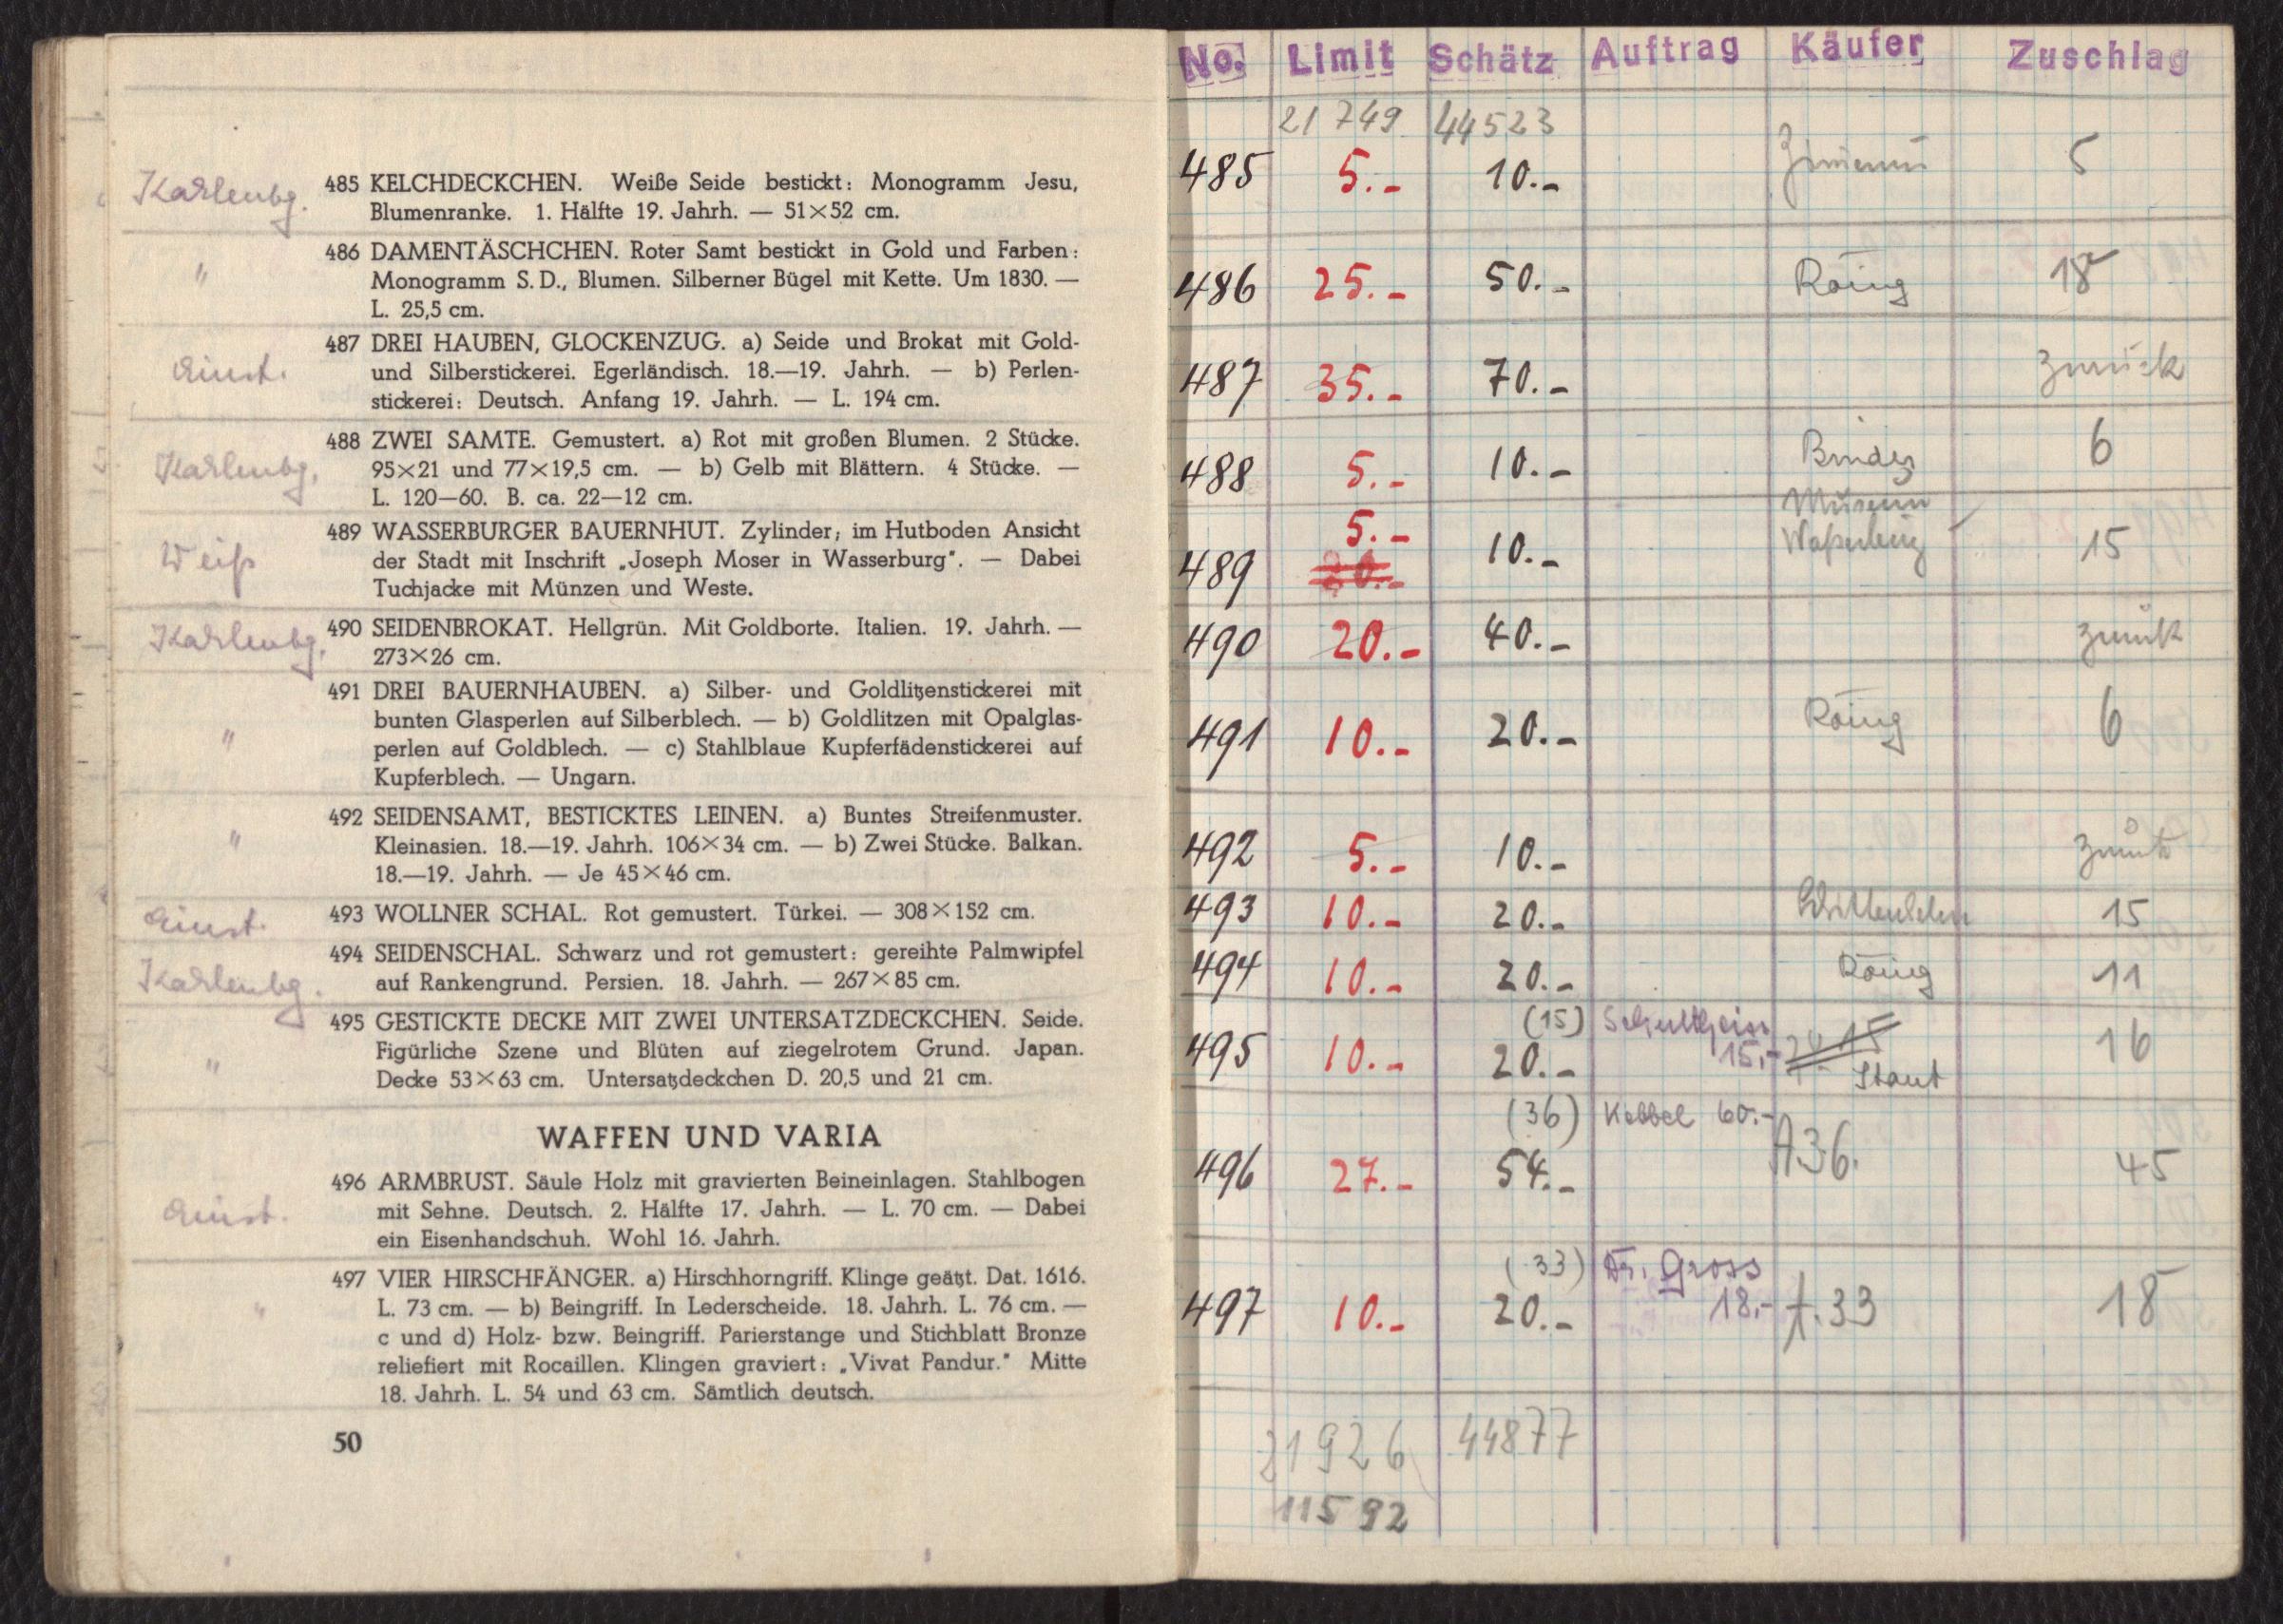 Karlenbg. 485 KELCHDECKCHEN. Weiße Seide bestickt: Monogramm Jesu,
Blumenranke. 1. Hälfte 19. Jahrh. — 51×52 cm.
" 486 DAMENTÄSCHCHEN. Roter Samt bestickt in Gold und Farben:
Monogramm S. D., Blumen. Silberner Bügel mit Kette. Um 1830. —
L. 25,5 cm.
487 DREI HAUBEN, GLOCKENZUG. a) Seide und Brokat mit Gold-
und Silberstickerei. Egerländisch. 18.—19. Jahrh. — b) Perlen-
stickerei: Deutsch. Anfang 19. Jahrh. — L. 194 cm.
Karlenbg. 488 ZWEI SAMTE. Gemustert. a) Rot mit großen Blumen. 2 Stücke.
95×21 und 77×19,5 cm. — b) Gelb mit Blättern. 4 Stücke. —
L. 120—60. B. ca. 22—12 cm.
489 WASSERBURGER BAUERNHUT. Zylinder; im Hutboden Ansicht
Weiß der Stadt mit Inschrift „Joseph Moser in Wasserburg". — Dabei
Tuchjacke mit Münzen und Weste.
Karlenbg. 490 SEIDENBROKAT. Hellgrün. Mit Goldborte. Italien. 19. Jahrh. —
273×26 cm.
491 DREI BAUERNHAUBEN. a) Silber- und Goldlitzenstickerei mit
" bunten Glasperlen auf Silberblech. — b) Goldlitzen mit Opalglas-
perlen auf Goldblech. — c) Stahlblaue Kupferfädenstickerei auf
Kupferblech. — Ungarn.
492 SEIDENSAMT, BESTICKTES LEINEN. a) Buntes Streifenmuster.
" Kleinasien. 18.—19. Jahrh. 106×34 cm. — b) Zwei Stücke. Balkan.
18.—19. Jahrh. — Je 45×46 cm.
493 WOLLNER SCHAL. Rot gemustert. Türkei. — 308×152 cm.
494 SEIDENSCHAL. Schwarz und rot gemustert: gereihte Palmwipfel
Karlenbg. auf Rankengrund. Persien. 18. Jahrh. — 267×85 cm.
495 GESTICKTE DECKE MIT ZWEI UNTERSATZDECKCHEN. Seide.
" Figürliche Szene und Blüten auf ziegelrotem Grund. Japan.
Decke 53×63 cm. Untersatzdeckchen D. 20,5 und 21 cm.
WAFFEN UND VARIA
496 ARMBRUST. Säule Holz mit gravierten Beineinlagen. Stahlbogen
mit Sehne. Deutsch. 2. Hälfte 17. Jahrh. — L. 70 cm. — Dabei
ein Eisenhandschuh. Wohl 16. Jahrh.
497 VIER HIRSCHFÄNGER. a) Hirschhorngriff. Klinge geätzt. Dat. 1616.
" L. 73 cm. — b) Beingriff. In Lederscheide. 18. Jahrh. L. 76 cm. —
c und d) Holz- bzw. Beingriff. Parierstange und Stichblatt Bronze
reliefiert mit Rocaillen. Klingen graviert: „Vivat Pandur." Mitte
18. Jahrh. L. 54 und 63 cm. Sämtlich deutsch.
50
No. Limit Schätz Auftrag Käufer Zuschlag
21 749 44523
485 5.- 10.- 5
486 25.- 50.- 18
487 35.- 70.- Zurück
488 5.- 10.- 6
5.- Museum
489 10.- Waßerburg 15
490 20.- 40.- zurück
491 10.- 20.- 6
492 5.- 10.- zurück
493 10.- 20.- 15
494 10.- 20.- 11
(15) Schultheiss
495 10.- 20.- 15.- Staut 16
(36) Kobbel 60.-
496 27.- 54.- A36. 45
(33) Dr. Gross
497 10.- 20.- 18.- A.33 18
21926 44877
11592